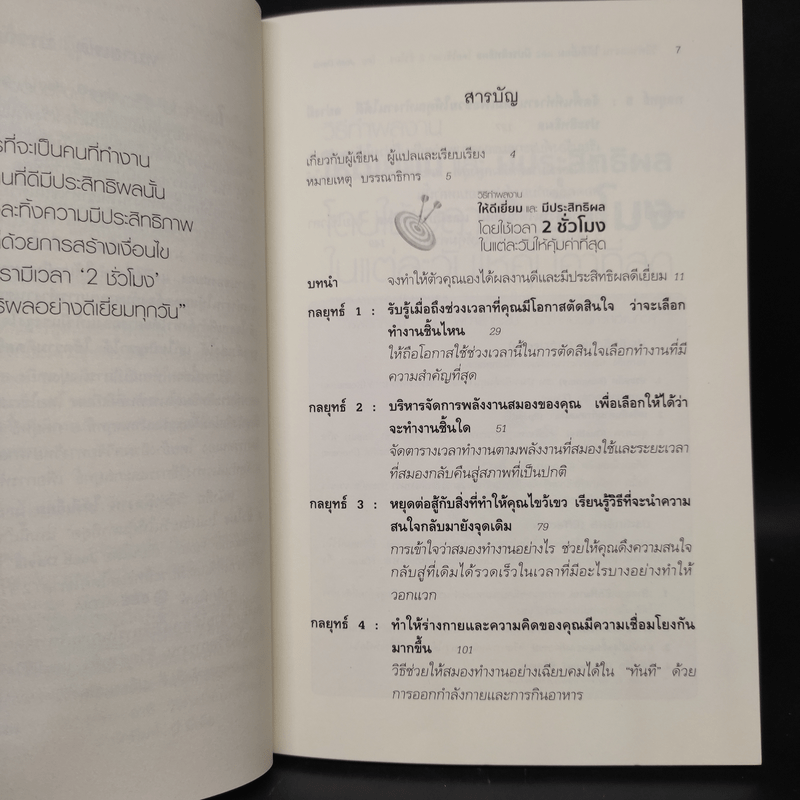 รที่จะเป็นคนที่ทำงาน
นที่ดีมีประสิทธิผลนั้น
ละทิ้งความมีประสิทธิภาพ
ด้วยการสร้างเงื่อนไข
รามีเวลา ‘2 ชั่วโมง’
ธิผลอย่างดีเยี่ยมทุกวัน”
7
สารบัญ
เกี่ยวกับผู้เขียน ผู้แปลและเรียบเรียง 4
หมายเหตุ บรรณาธิการ 5
วิธีทำผลงาน
ให้ดีเยี่ยม และ มีประสิทธิผล
โดยใช้เวลา 2 ชั่วโมง
ในแต่ละวันให้คุ้มค่าที่สุด
บทนำ จงทำให้ตัวคุณเองได้ผลงานดีและมีประสิทธิผลดีเยี่ยม 11
กลยุทธ์ 1 : รับรู้เมื่อถึงช่วงเวลาที่คุณมีโอกาสตัดสินใจ ว่าจะเลือก
ทำงานชิ้นไหน 29
ให้ถือโอกาสใช้ช่วงเวลานี้ในการตัดสินใจเลือกทำงานที่มี
ความสำคัญที่สุด
กลยุทธ์ 2 : บริหารจัดการพลังงานสมองของคุณ เพื่อเลือกให้ได้ว่า
จะทำงานชิ้นใด 51
จัดตารางเวลาทำงานตามพลังงานที่สมองใช้และระยะเวลา
ที่สมองกลับคืนสู่สภาพที่เป็นปกติ
กลยุทธ์ 3 : หยุดต่อสู้กับสิ่งที่ทำให้คุณไขว้เขว เรียนรู้วิธีที่จะนำความ
สนใจกลับมายังจุดเดิม 79
การเข้าใจว่าสมองทำงานอย่างไร ช่วยให้คุณดึงความสนใจ
กลับสู่ที่เดิมได้รวดเร็วในเวลาที่มีอะไรบางอย่างทำให้
วอกแวก
กลยุทธ์ 4 : ทำให้ร่างกายและความคิดของคุณมีความเชื่อมโยงกัน
มากขึ้น 101
วิธีช่วยให้สมองทำงานอย่างเฉียบคมได้ใน “ทันที” ด้วย
การออกกำลังกายและการกินอาหาร